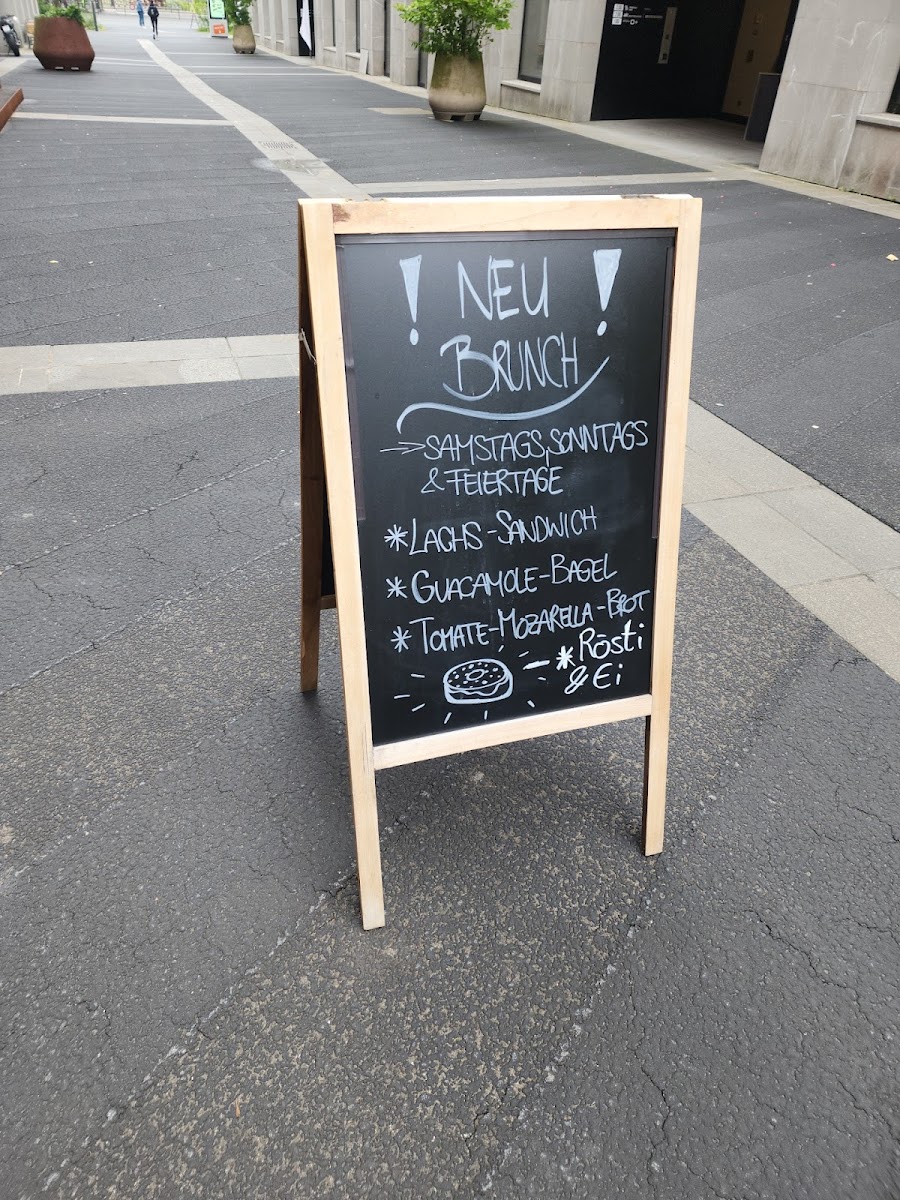 ! NEU !
BRUNCH
→ SAMSTAGS, SONNTAGS
& FEIERTAGE
* LACHS-SANDWICH
* GUACAMOLE-BAGEL
* TOMATE-MOZARELLA-BROT
* Rösti
& Ei